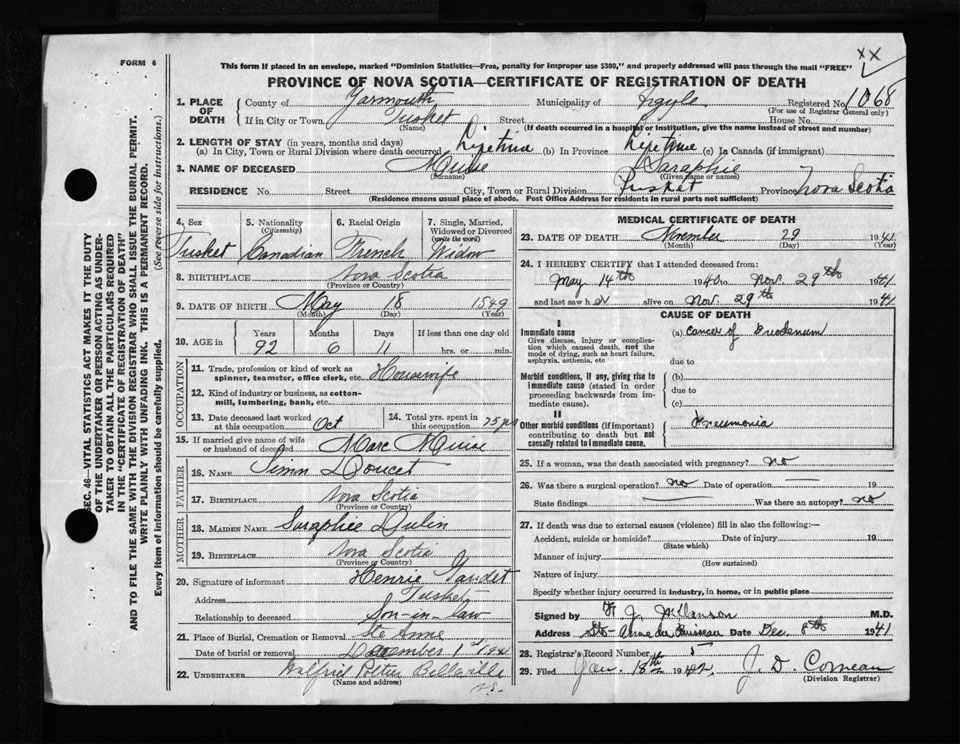 XX
FORM 6
This form if placed in an envelope, marked "Dominion Statistics—Free, penalty for improper use $300," and properly addressed will pass through the mail "FREE"
PROVINCE OF NOVA SCOTIA—CERTIFICATE OF REGISTRATION OF DEATH
1. PLACE OF DEATH County of Yarmouth Municipality of Argyle Registered No. 1068
(For use of Registrar General only)
If in City or Town Tusket Street House No.
(Name) (If death occurred in a hospital or institution, give the name instead of street and number)
2. LENGTH OF STAY (in years, months and days)
(a) In City, Town or Rural Division where death occurred Lifetime (b) In Province Lifetime (c) In Canada (if immigrant)
3. NAME OF DECEASED Muise Saraphie
(Surname) (Given name or names)
RESIDENCE No. Street City, Town or Rural Division Tusket Province Nova Scotia
(Residence means usual place of abode. Post Office Address for residents in rural parts not sufficient)
4. Sex 5. Nationality (Citizenship) 6. Racial Origin 7. Single, Married, Widowed or Divorced (write the word)
Tusket Canadian French Widow
8. BIRTHPLACE Nova Scotia
(Province or Country)
9. DATE OF BIRTH May 18 1549
(Month) (Day) (Year)
10. AGE in Years Months Days If less than one day old
92 6 11 hrs. or min.
OCCUPATION
11. Trade, profession or kind of work as spinner, teamster, office clerk, etc. Housewife
12. Kind of industry or business, as cotton-mill, lumbering, bank, etc.
13. Date deceased last worked at this occupation Oct 14. Total yrs. spent in this occupation 75 yrs
15. If married give name of wife or husband of deceased Marc Muise
FATHER
16. NAME Simm Doucet
17. BIRTHPLACE Nova Scotia
(Province or Country)
MOTHER
18. MAIDEN NAME Saraphie Dulin
19. BIRTHPLACE Nova Scotia
(Province or Country)
20. Signature of informant Henrie Gaudet
Address Tusket
Relationship to deceased Son-in-law
21. Place of Burial, Cremation or Removal Ste Anne
Date of burial or removal December 1st 1941
22. UNDERTAKER Walfrid Potier Belleville
(Name and address) N.S.
MEDICAL CERTIFICATE OF DEATH
23. DATE OF DEATH November 29 1941
(Month) (Day) (Year)
24. I HEREBY CERTIFY that I attended deceased from:
May 14th 1940 to Nov. 29th 1941
and last saw her alive on Nov. 29th 1941
CAUSE OF DEATH
I
Immediate cause (a) Cancer of Duodenum
Give disease, injury or complication which caused death, not the mode of dying, such as heart failure, asphyxia, asthenia, etc
due to
Morbid conditions, if any, giving rise to immediate cause (stated in order proceeding backwards from immediate cause).
(b)
due to
(c)
II
Other morbid conditions (if important) contributing to death but not causally related to immediate cause.
Pneumonia
25. If a woman, was the death associated with pregnancy? no
26. Was there a surgical operation? no Date of operation 19
State findings Was there an autopsy? no
27. If death was due to external causes (violence) fill in also the following:—
Accident, suicide or homicide? Date of injury 19
(State which)
Manner of injury
(How sustained)
Nature of injury
Specify whether injury occurred in industry, in home, or in public place
Signed by J. Melanson M.D.
Address Ste-Anne du Ruisseau Date Dec. 8th 1941
28. Registrar's Record Number 5
29. Filed Jan. 18th 1942 J. D. Comeau
(Division Registrar)
SEC. 46—VITAL STATISTICS ACT MAKES IT THE DUTY
OF THE UNDERTAKER OR PERSON ACTING AS UNDERTAKER
TO OBTAIN ALL THE PARTICULARS REQUIRED
IN THE "CERTIFICATE OF REGISTRATION OF DEATH"
AND TO FILE THE SAME WITH THE DIVISION REGISTRAR WHO SHALL ISSUE THE BURIAL PERMIT.
WRITE PLAINLY WITH UNFADING INK. THIS IS A PERMANENT RECORD.
Every item of information should be carefully supplied. (See reverse side for instructions.)